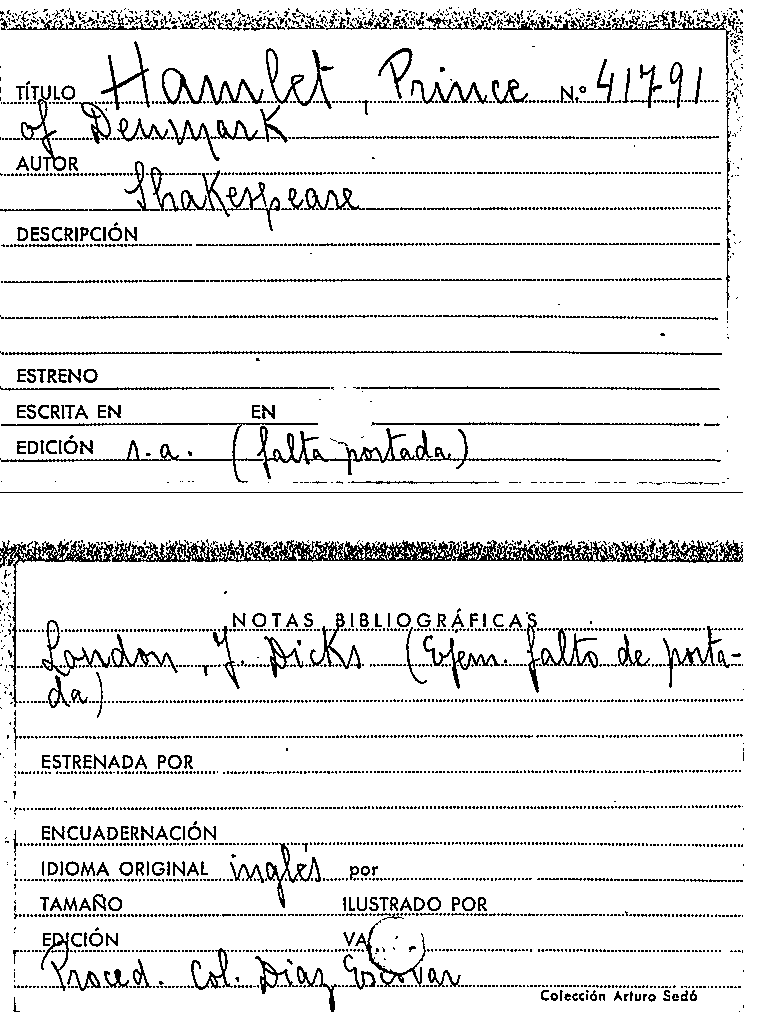 TÍTULO Hamlet, Prince N.º 41791
of Denmark
AUTOR
Shakespeare
DESCRIPCIÓN
ESTRENO
ESCRITA EN EN
EDICIÓN s.a. (falta portada)
NOTAS BIBLIOGRÁFICAS
London, J. Dicks (Ejem. falto de porta-
da)
ESTRENADA POR
ENCUADERNACIÓN
IDIOMA ORIGINAL inglés por
TAMAÑO ILUSTRADO POR
EDICIÓN VA
Proced. Col. Díaz Escovar
Colección Arturo Sedó